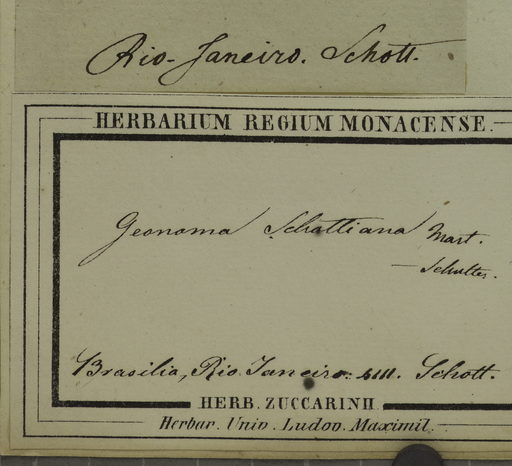 Rio-Janeiro. Schott.
HERBARIUM REGIUM MONACENSE.
Geonoma Schottiana Mart.
— Schultes.
Brasilia, Rio Janeiro. Schott.
HERB. ZUCCARINII
Herbar. Univ. Ludov. Maximil.